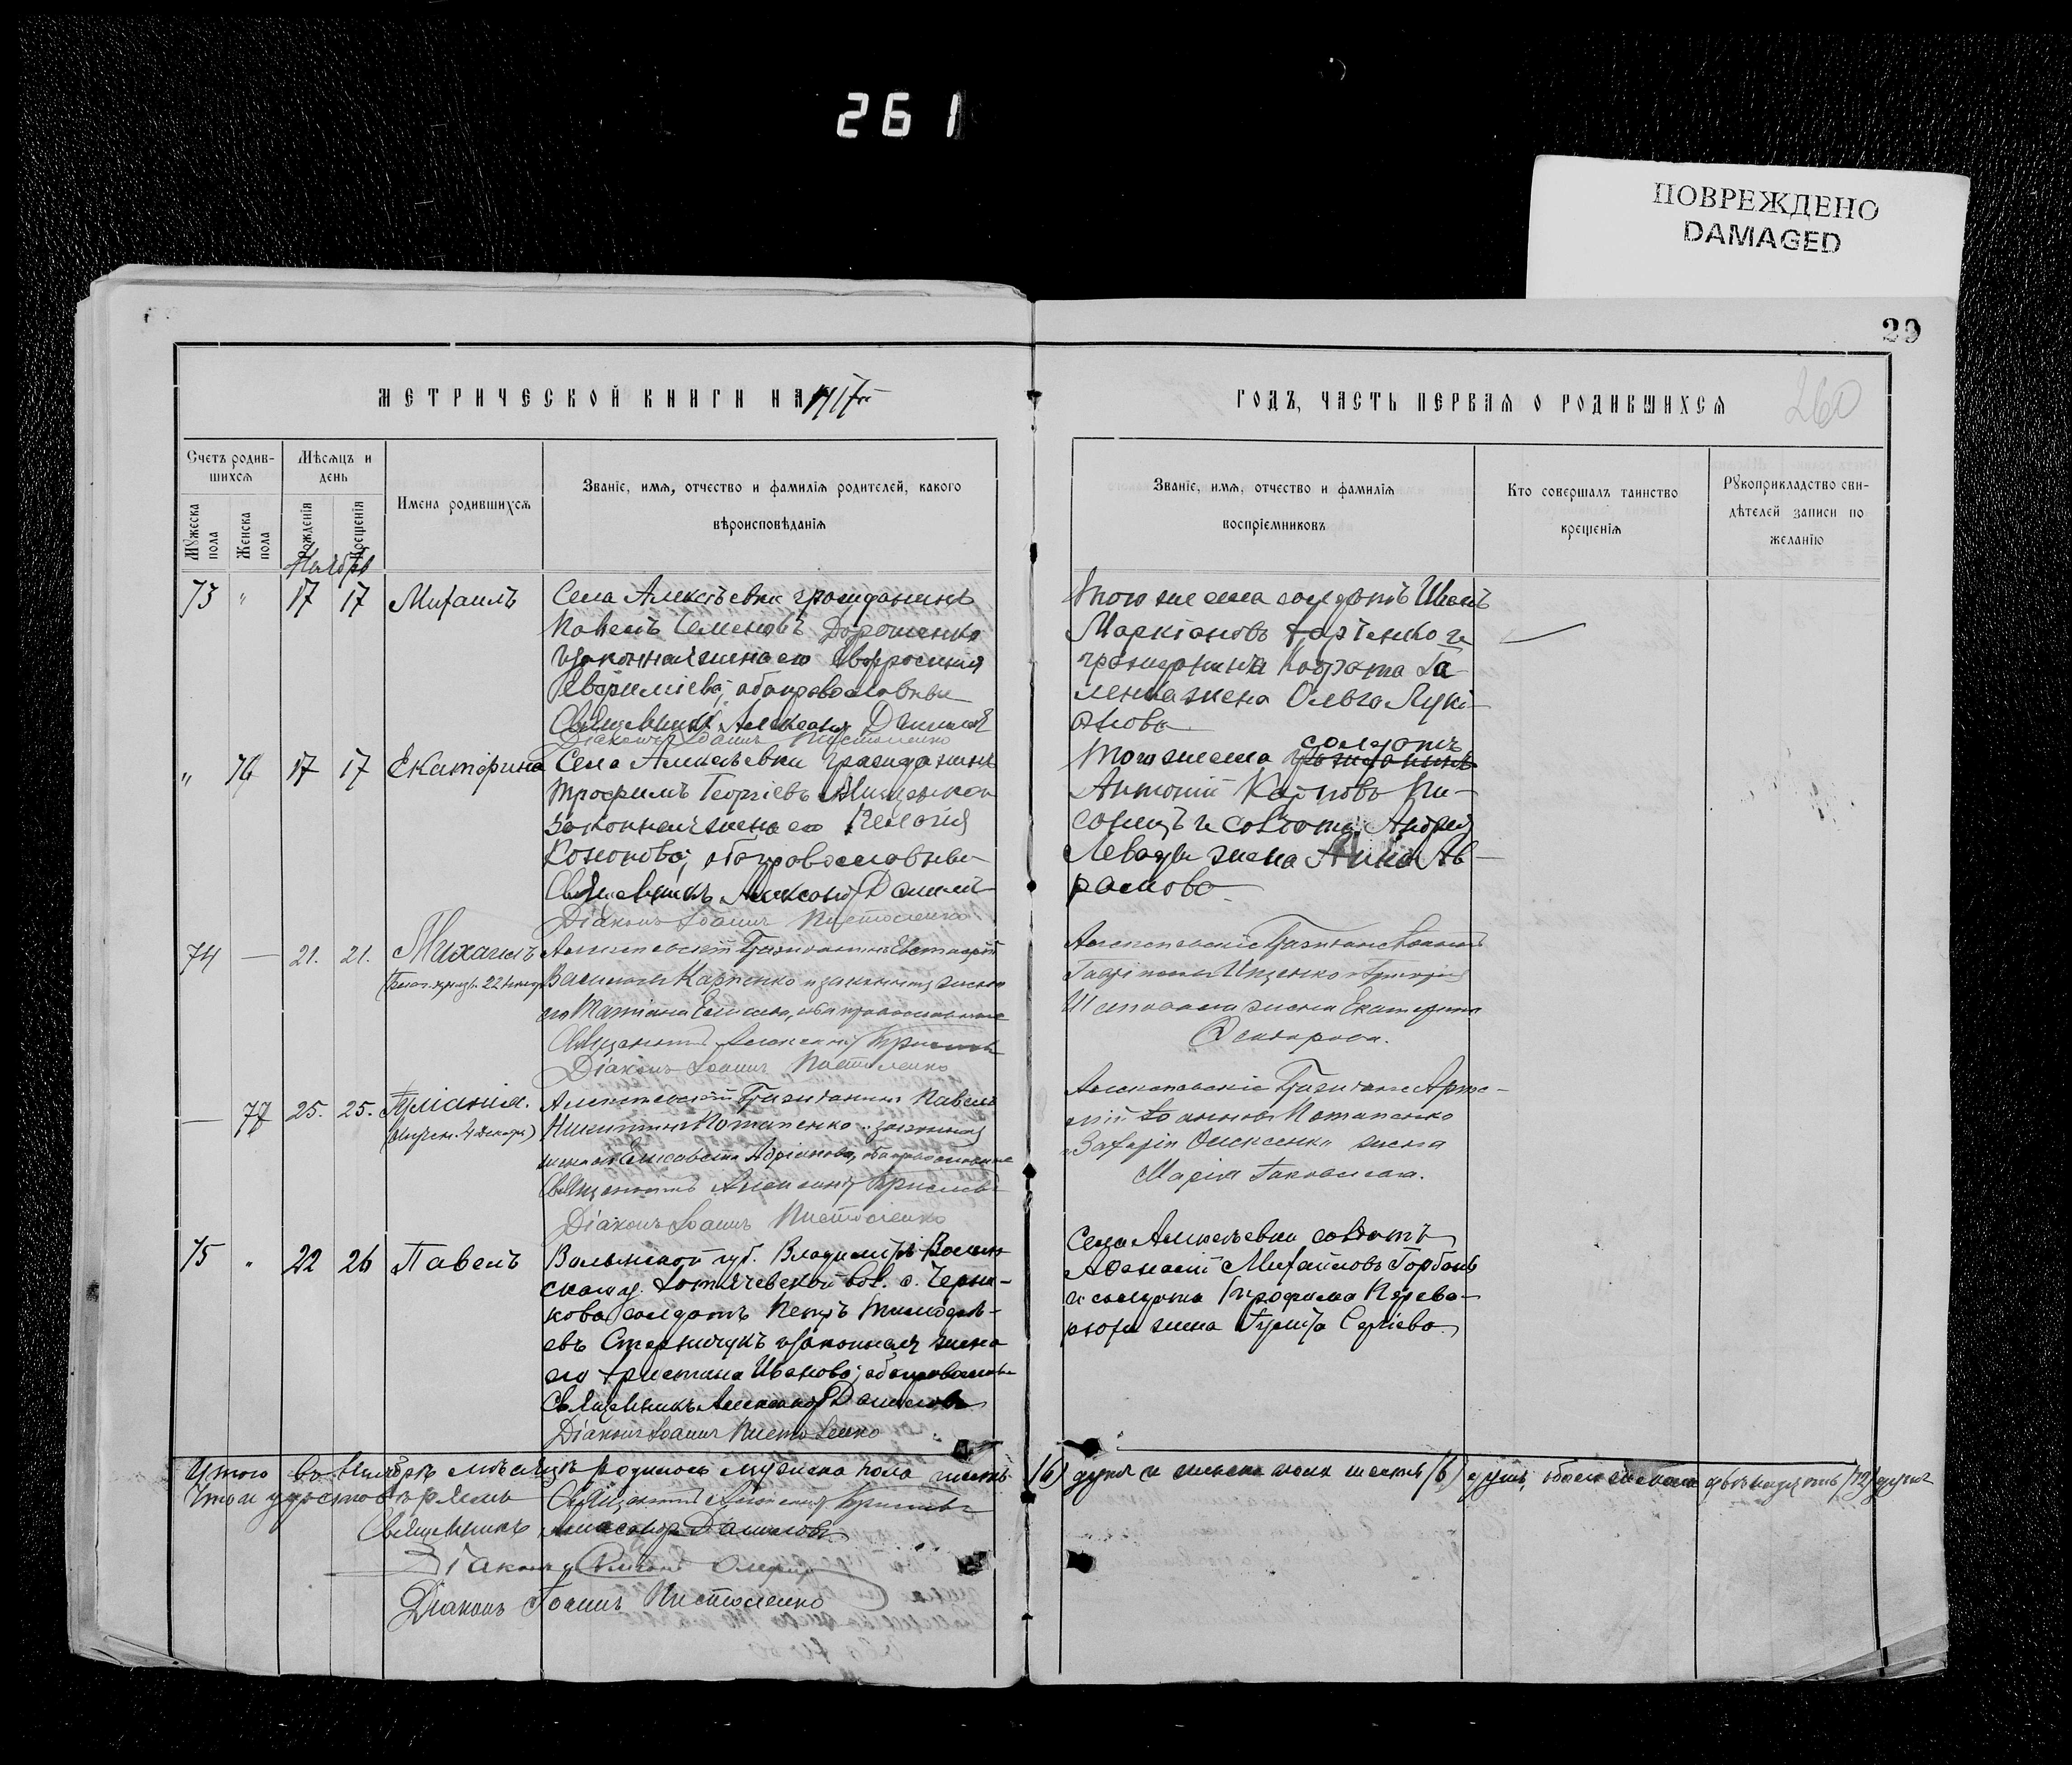 261
ПОВРЕЖДЕНО
DAMAGED
29
МЕТРИЧЕСКОЙ КНИГИ НА 1917й
ГОДЪ, ЧАСТЬ ПЕРВАЯ О РОДИВШИХСЯ
260
Счетъ родив-
шихся
Мужеска пола
Женска пола
Мѣсяцъ и
день
Рожденія
Крещенія
Имена родившихся
Званіе, имя, отчество и фамилія родителей, какого
вѣроисповѣданія
Званіе, имя, отчество и фамилія
воспріемниковъ
Кто совершалъ таинство
крещенія
Рукоприкладство сви-
дѣтелей записи по
желанію
Ноябрь
73 " 17 17 Михаилъ
Села Алексѣевки гражданинъ
Павелъ Семеновъ Дорошенко
и законная жена его Евфросинія
оба православные
Священникъ Александръ Данилов
Діаконъ Іоаннъ Пистоленко
Того же села солдатъ Иванъ
Маркіановъ и
гражданина Кодрата Га-
ленка жена Ольга Лукі-
анова
" 76 17 17 Екатерина
Села Алексѣевки гражданинъ
Трофимъ Георгіевъ и
законная жена его Пелагія
Кононова, оба православные
Священникъ Александръ Данилов
Діаконъ Іоаннъ Пистоленко
солдатъ
Того же села гражданинъ
Антоній Карповъ Пи-
сарецъ и солдата Андрея
Левады жена Анна Ав-
рамова
74 — 21. 21. Михаилъ
Алексѣевскій Гражданинъ Евстафій
Карпенко и законная жена
его Татіана оба православные
Священникъ Алексѣй
Діаконъ Іоаннъ Пистоленко
Алексѣевскіе Граждане
Ищенко и Григорія
жена Екатерина
Ѳеодорова.
— 77 25. 25. Іуліанія.
Алексѣевскій Гражданинъ Павелъ
Никитинъ Потапенко и законная
жена его Елисавета Адріанова, оба православные
Священникъ Алексѣй
Діаконъ Іоаннъ Пистоленко
Алексѣевскіе Граждане Арте-
мій Іоанновъ Потапенко
и Захарія Олексенка жена
Марія Іаковлева.
75 " 22 26 Павелъ
Волынской губ. Владиміръ-Волын-
скаго у. вол. с. Черни-
кова солдатъ Петръ Тимоѳе-
евъ и законная жена
его Христина Иванова, оба православные
Священникъ Александръ Данилов
Діаконъ Іоаннъ Пистоленко
Села Алексѣевки солдатъ
Аѳанасій Михайловъ Горбань
и солдата Трофима Перева-
рюхи жена Сергіева
Итого въ Ноябрѣ мѣсяцѣ родилось мужеска пола шесть (6) душъ и женска пола шесть (6) душъ, обоего пола двѣнадцать (12) душъ
Въ томъ удостовѣряемъ Священникъ Алексѣй
Священникъ Александръ Данилов
Діаконъ
Діаконъ Іоаннъ Пистоленко